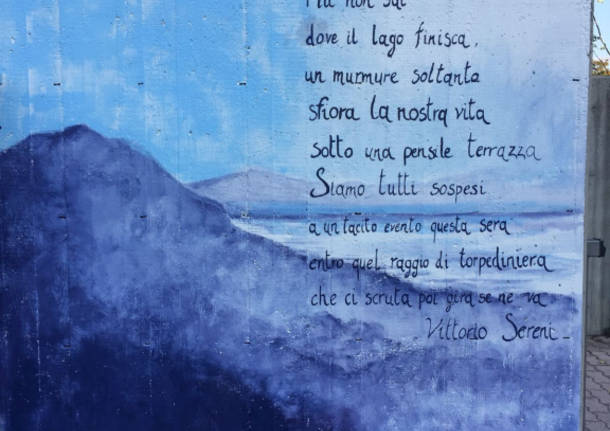 più non sai
dove il lago finisca,
un murmure soltanto
sfiora la nostra vita
sotto una pensile terrazza
Siamo tutti sospesi
a un tacito evento questa sera
entro quel raggio di torpediniera
che ci scruta poi gira se ne va
Vittorio Sereni